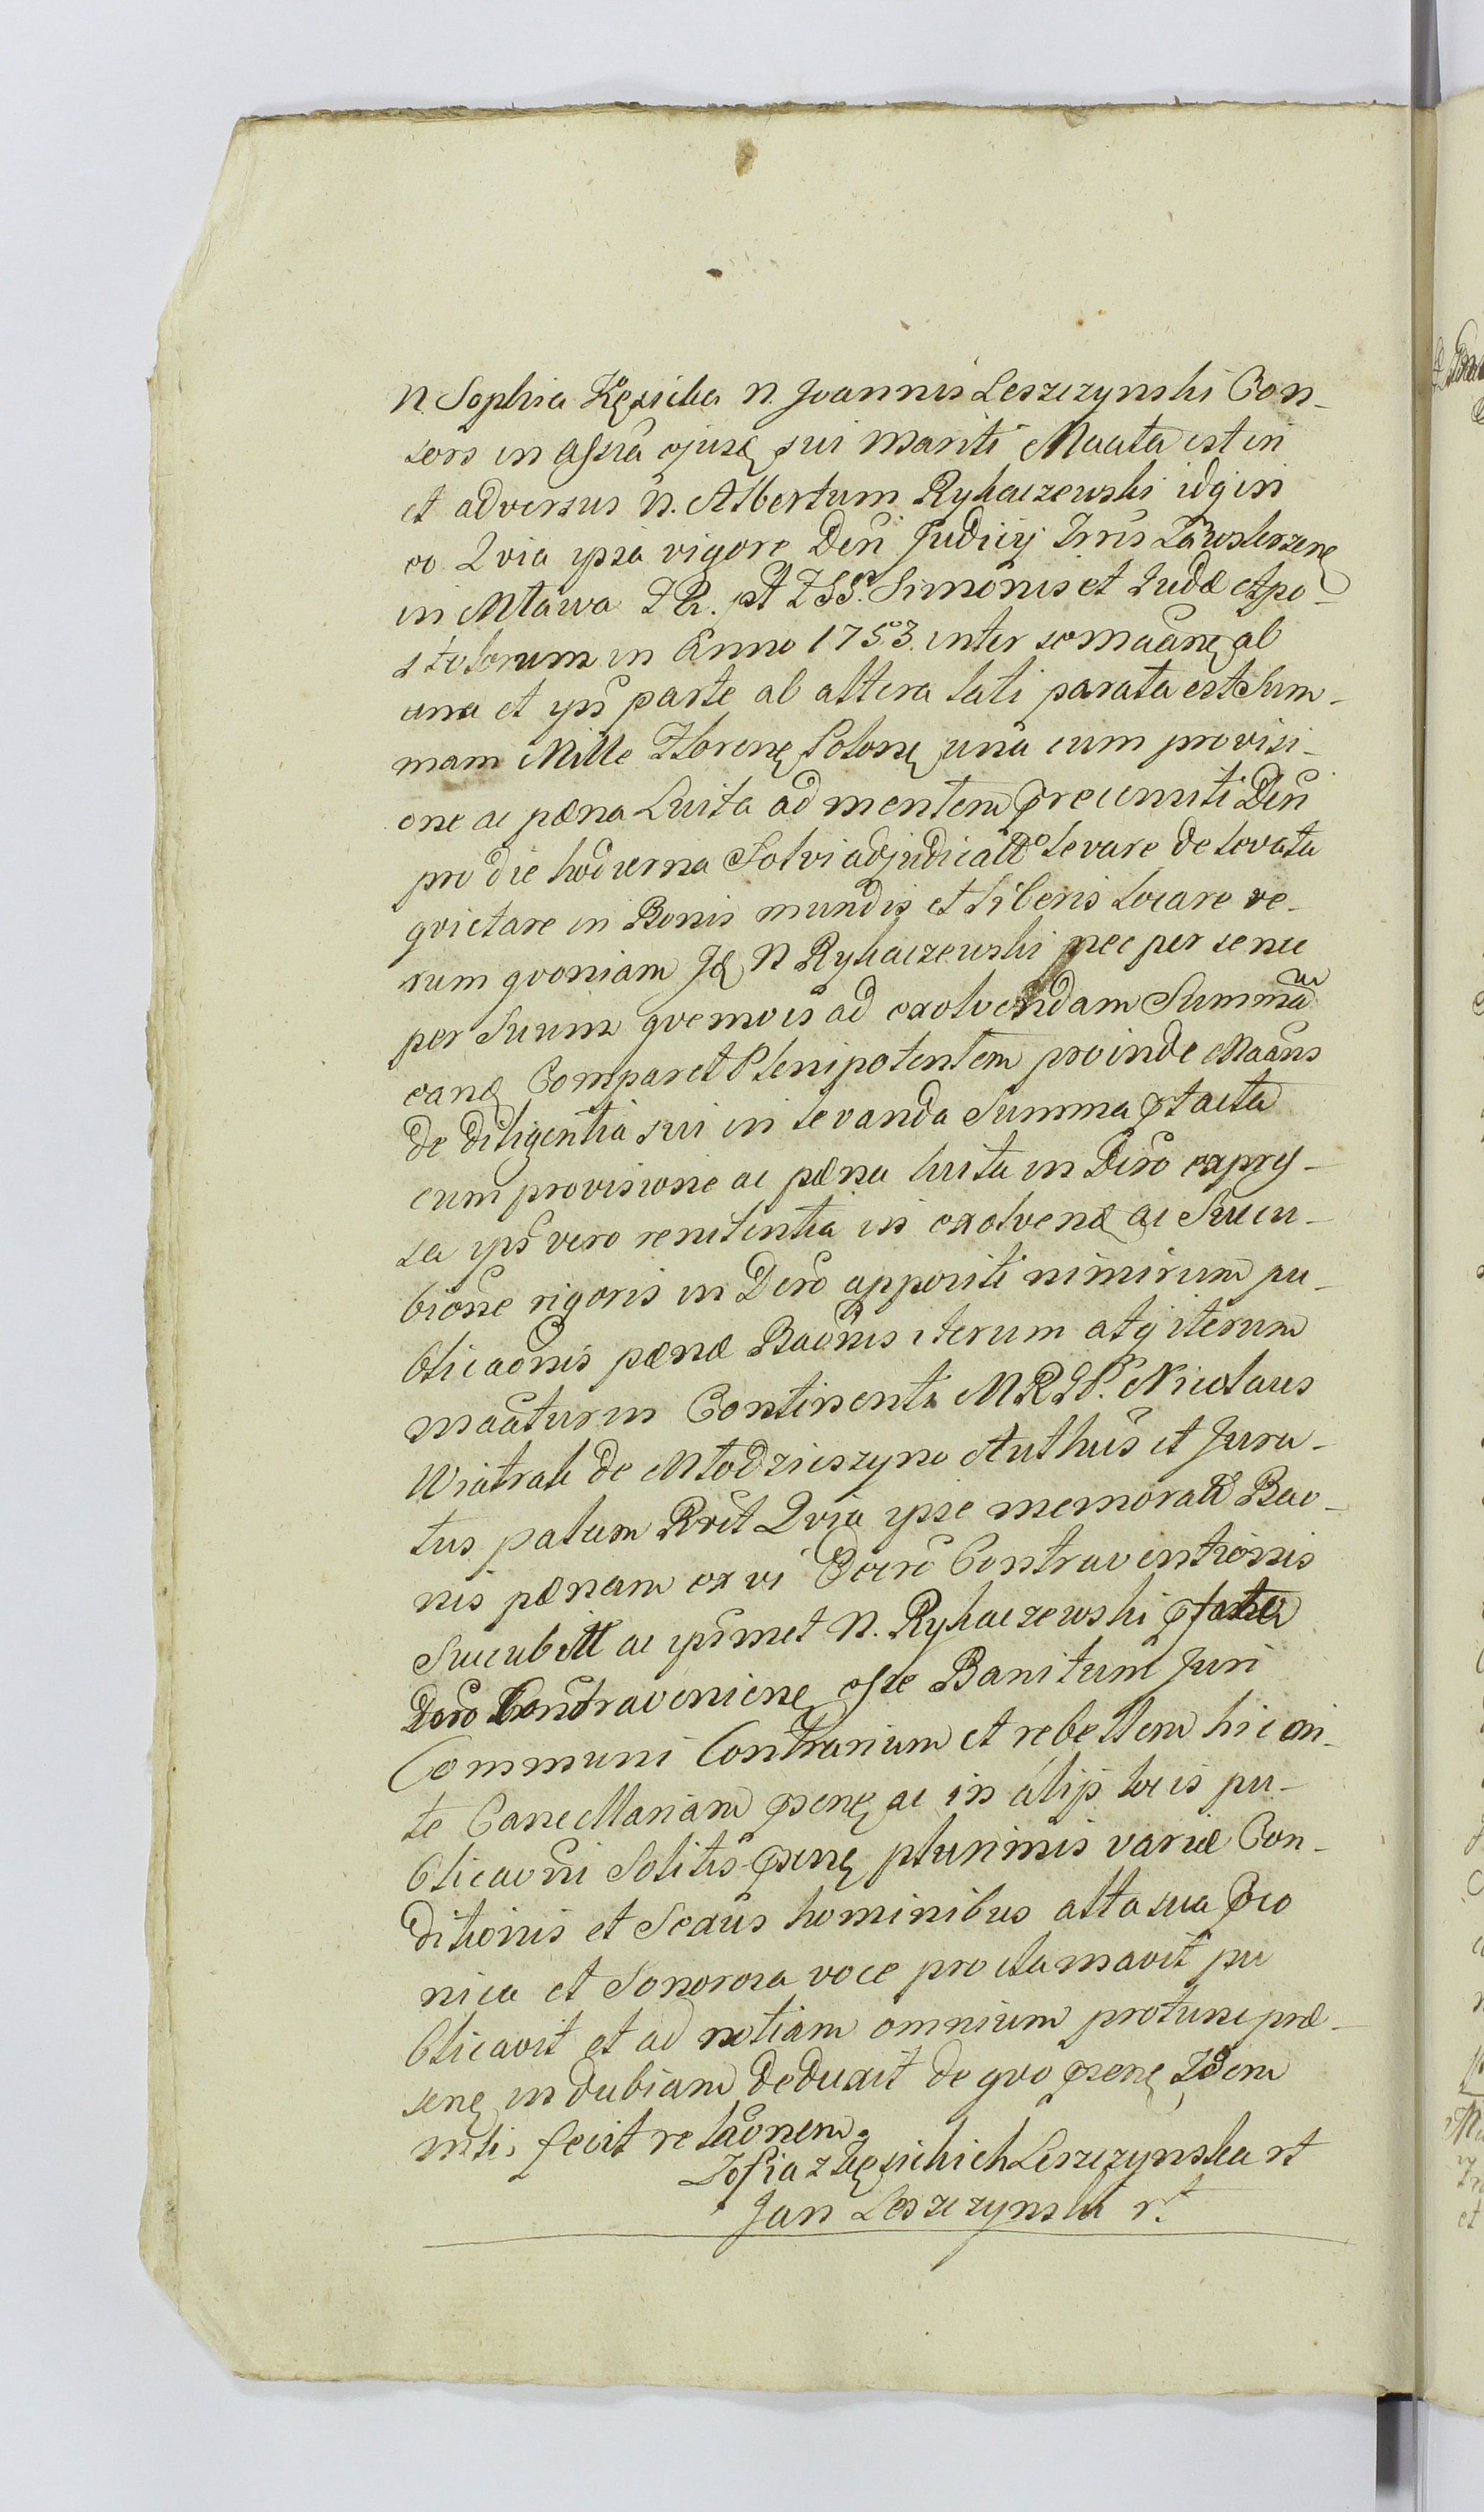 N. Sophia Kęsicka N. Joannis Leszczynski Con-
sors in assīa ejusd sui mariti Maata est in
et adversus N. Albertum Rykaczewski idq in
eo Qvia ypsa vigore Dēri Judicij Trris Zawskrzenę
in Mława F R. pt FSS. Simonis et Judæ Apo-
stolorum in Anno 1753. inter somaānę ab
una et yps parte ab altera lati parata est Sum-
mam Mille Florenę Polonę una cum provisi-
one ac pæna Luita ad mentem præcensiti Dēri
pro die hodierna Solvi adjudicatt levare de levata
qvietare in Bonis mundis et liberis locare ve-
rum qvoniam Jd N Rykaczewski nec per se nec
per Suum qvemvis ad exolvendam Summam
eand Comparet Plenipotentem proinde Maāns
de diligentia sui in levanda Summa ptacta
cum provisione ac pæna luita in Dēro expres-
sa yps vero renitentia in exolvend ac Succu-
bione rigoris in Dēro appositi nimirum pu-
blicaōnis pænæ Baōnis iterum atq iterum
maātur in Continenti MRDP. Nicolaus
Wiatrak de Młodzieszyno Authūs et Jura-
tus palam Rvit Qvia ypse memoratt Bao-
nis pænam ex vi Dēcrē Contraventionis
Succubitt ac ypsmet N. Rykaczewski
Dēro Contravenienę esse Banitum Juri
Communi Contrarium et rebellem hic an-
te Cancellariam pænę ac in alijs locis pu-
blicaōni Solitis pænę plurimis variæ Con-
ditionis et Sexus hominibus alta sua præo
nica et Sonorosa voce proclamavit pu
blicavit et ad notiam omnium protunc præ-
senę indubiam deduxit de qvo pænę Idem
mli. fecit relaōnem.
Zofia z Kęsickich Leszczynska rt
Jan Leszczynski r.